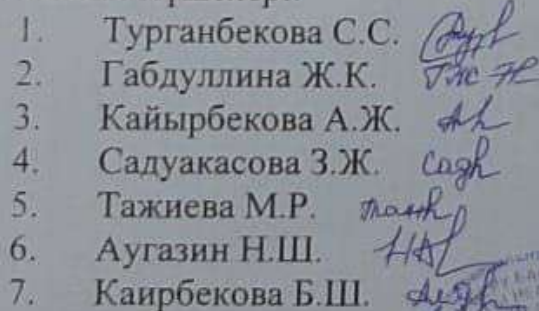 1. Турганбекова С.С.
2. Габдуллина Ж.К.
3. Кайырбекова А.Ж.
4. Садуакасова З.Ж.
5. Тажиева М.Р.
6. Аугазин Н.Ш.
7. Каирбекова Б.Ш.